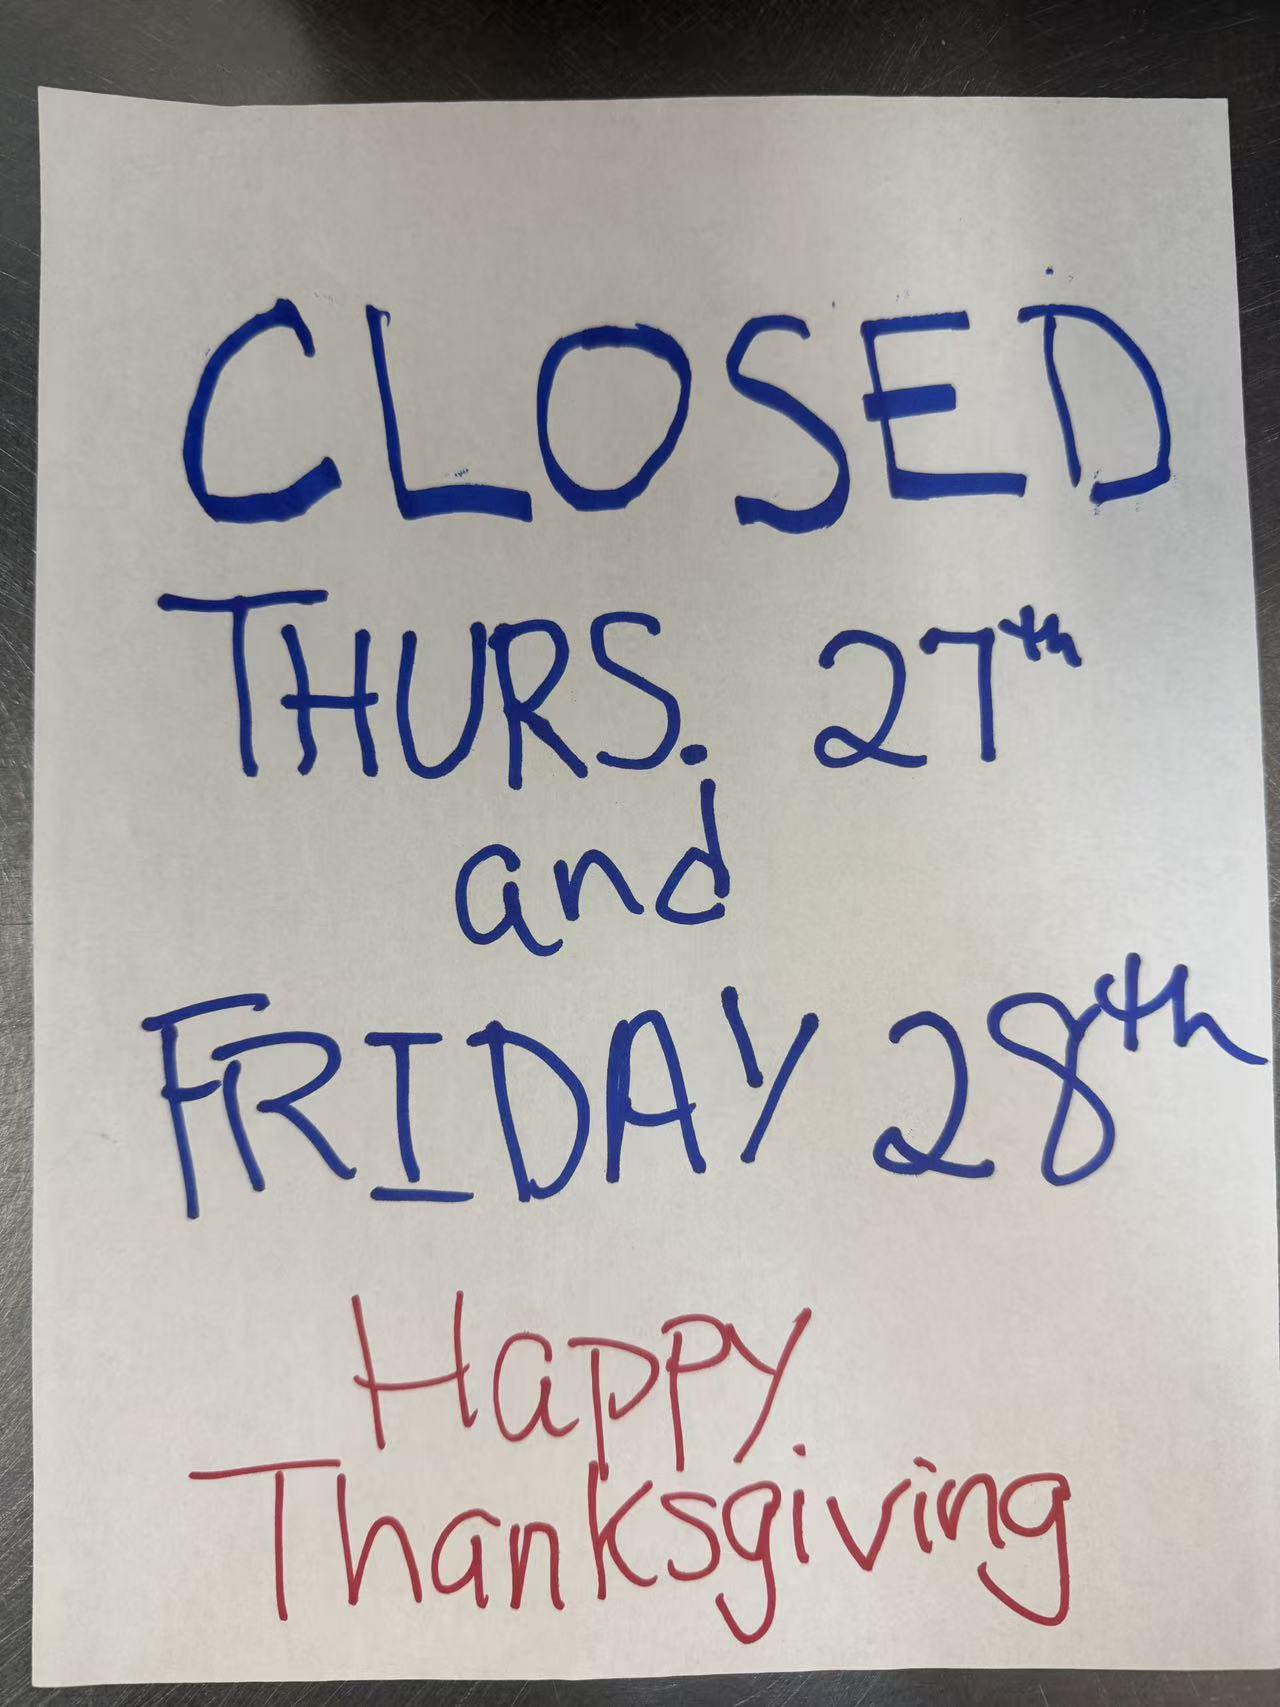 CLOSED
THURS. 27th
and
FRIDAY 28th
Happy
Thanksgiving